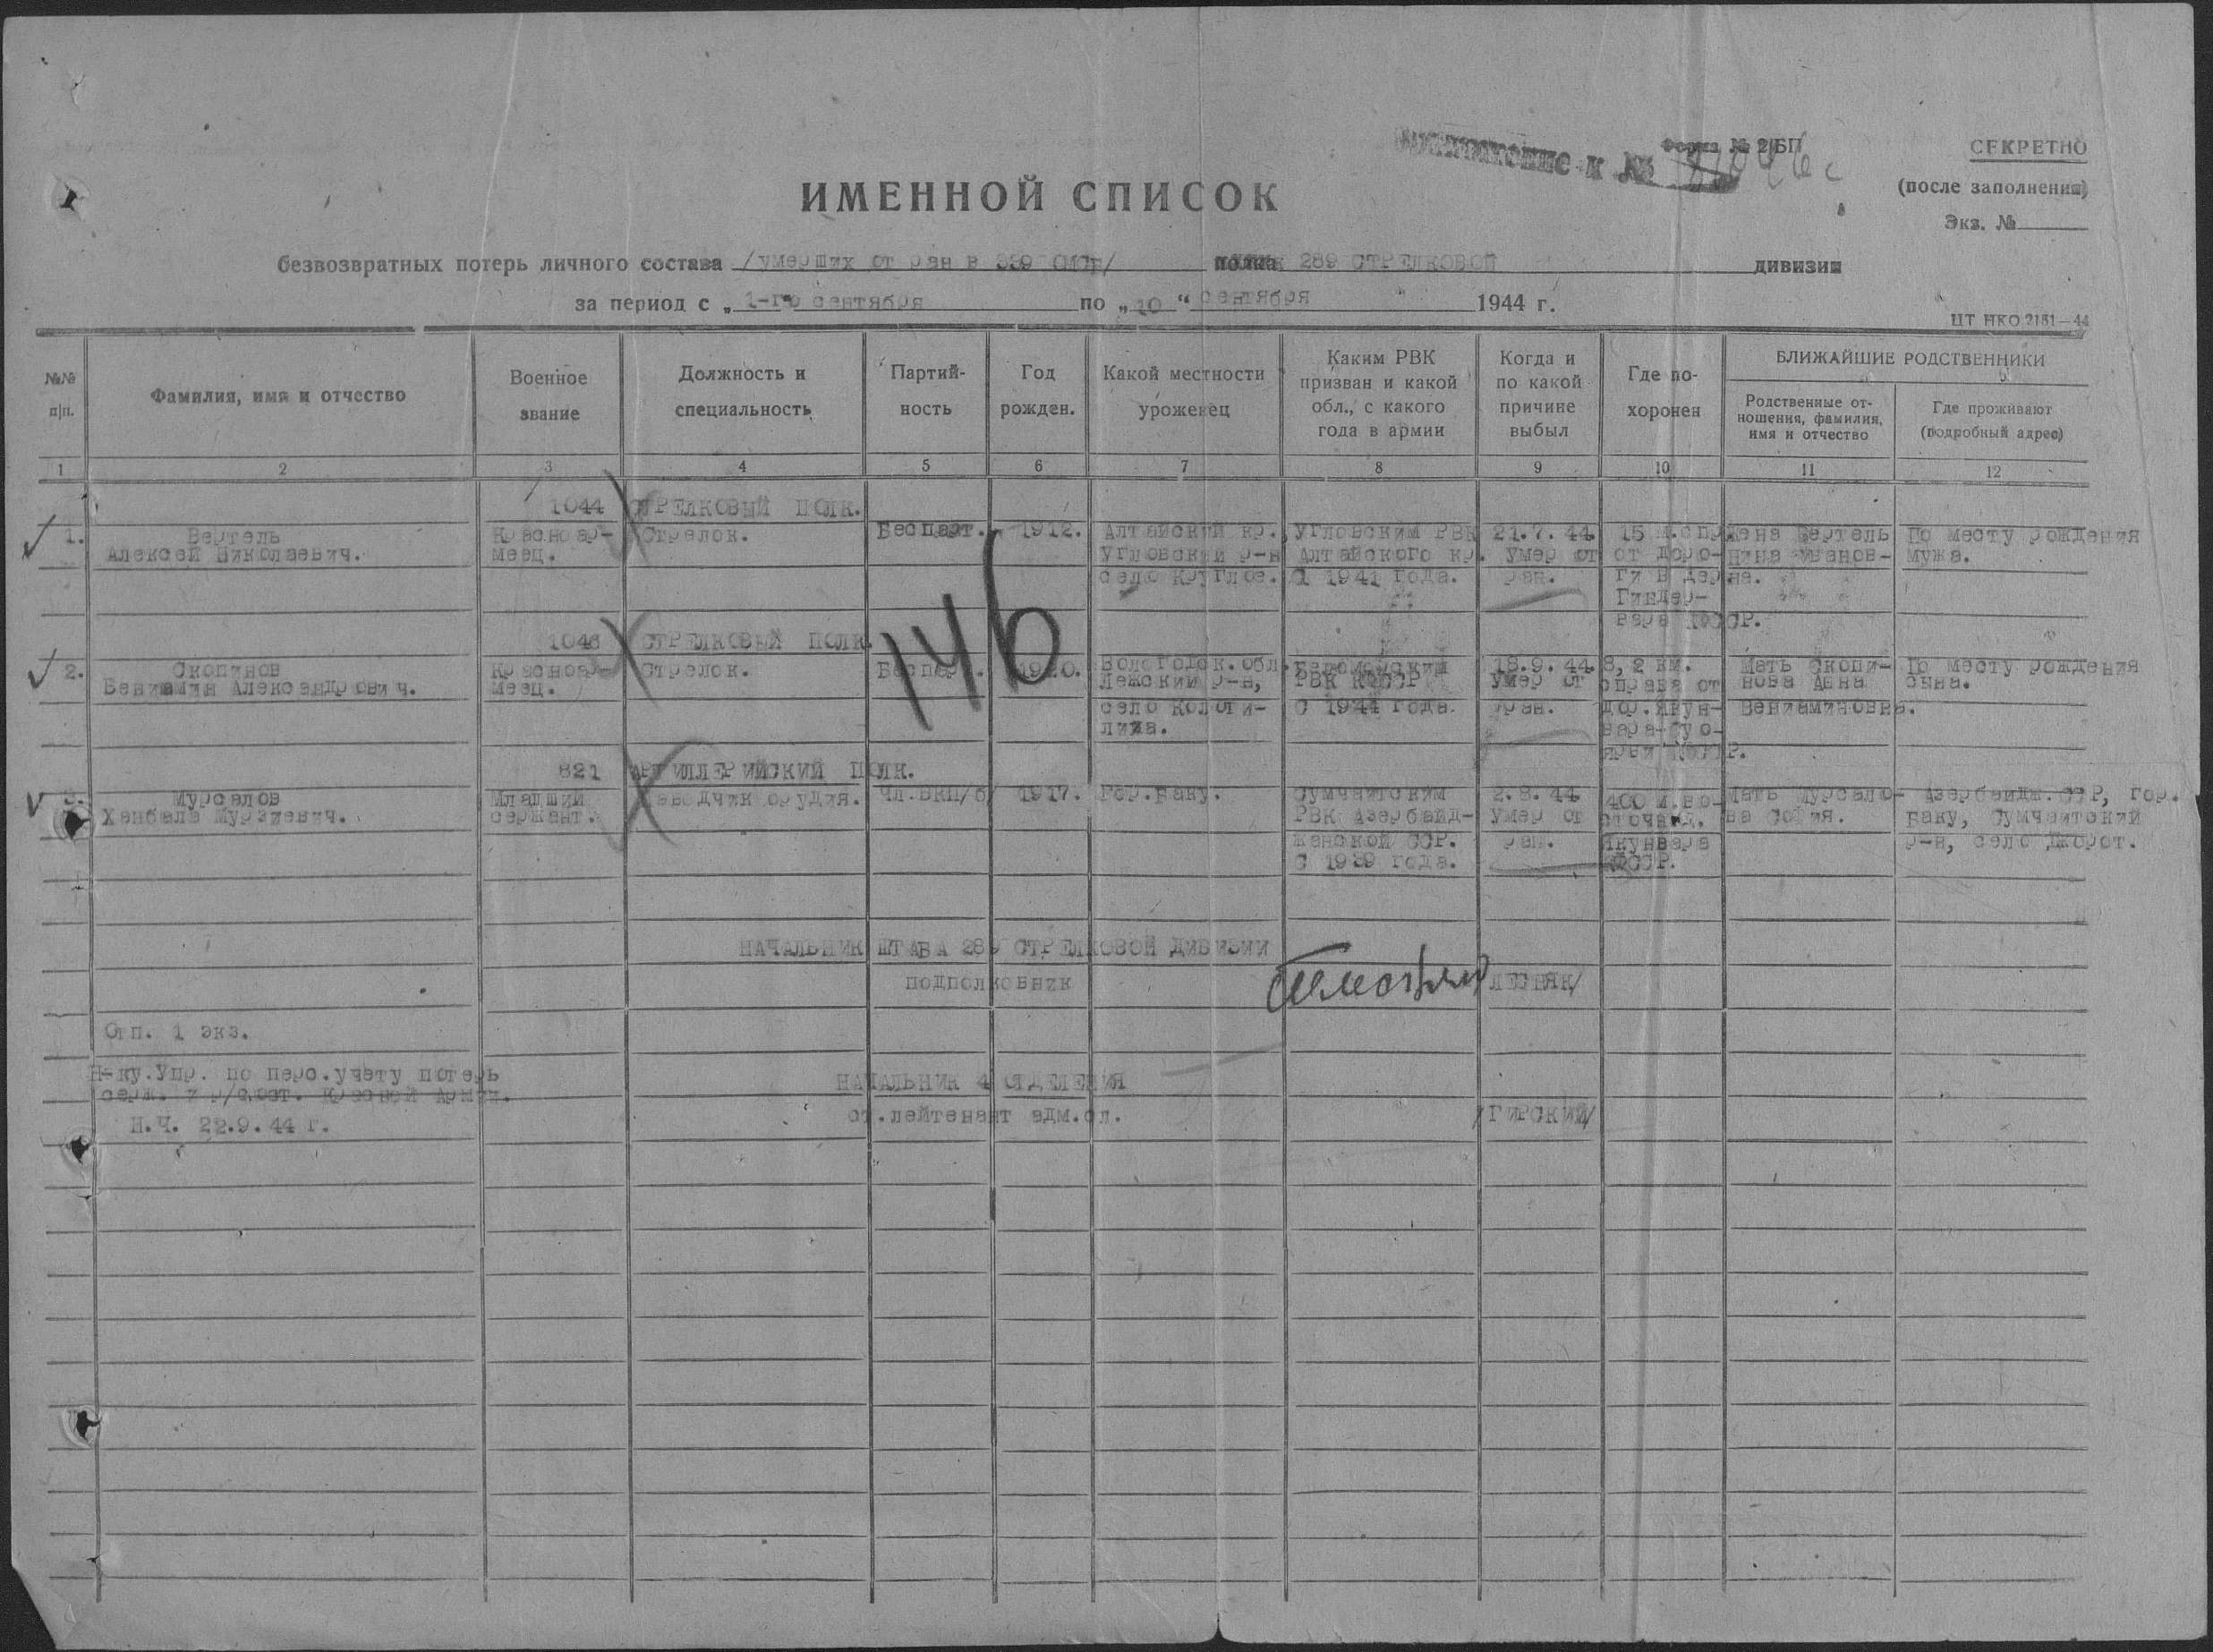 Форма № 2/БП
СЕКРЕТНО
к №
(после заполнения)
Экз. №
ИМЕННОЙ СПИСОК
безвозвратных потерь личного состава /умерших от ран в 339 полка 289 СТРЕЛКОВОЙ дивизии
за период с „1-го сентября по „10“ сентября 1944 г.
ЦТ НКО 2151—44
№№ п/п.
Фамилия, имя и отчество
Военное звание
Должность и специальность
Партий-
ность
Год рожден.
Какой местности уроженец
Каким РВК призван и какой обл., с какого года в армии
Когда и по какой причине выбыл
Где по-
хоронен
БЛИЖАЙШИЕ РОДСТВЕННИКИ
Родственные от-
ношения, фамилия, имя и отчество
Где проживают (подробный адрес)
1 2 3 4 5 6 7 8 9 10 11 12
1044 СТРЕЛКОВЫЙ ПОЛК.
1. Вертель Красноар- Стрелок. Беспарт. 1912. Алтайский кр. Угловским РВК 21.7.44 15 м.спр Жена Вертель По месту рождения
Алексей Николаевич. меец. Угловский р-н Алтайского кр. умер от от доро- Нина Иванов- мужа.
село Круглое. С 1941 года. ран. ги в дер на.
Гиндер-
вара КФССР.
146
1046 СТРЕЛКОВЫЙ ПОЛК.
2. Скопинов Красноар- Стрелок. 1920. Вологодск.обл. Беломорский 18.9.44 8,2 км. Мать Скопи- По месту рождения
Вениамин Александрович. меец. Лежский р-н, РВК КФССР умер от справа от нова Анна сына.
село Кологи- С 1944 года. ран. дор.Якун- Вениаминовна.
лижа. вара-
821 АРТИЛЛЕРИЙСКИЙ ПОЛК.
3. Мурсалов Младший Наводчик орудия. Чл.ВКП/б/ 1917. Гор.Баку. Сумчаитским 2.8.44 400 м.во- Мать Мурсало- Азербайдж.ССР, гор.
Ханбала Мурзиевич. сержант. РВК Азербайд- умер от сточ.д. ва София. Баку, Сумчаитский
жанской ССР. ран. Якунвара р-н, село Джорот.
С 1939 года. КФССР.
НАЧАЛЬНИК ШТАБА 289 СТРЕЛКОВОЙ ДИВИЗИИ
подполковник /ЛЕСНЯК/
Отп. 1 экз.
Н-ку.Упр. по перс.учету потерь
серж. и р/сост. Красной Армии.
НАЧАЛЬНИК 4 ОТДЕЛЕНИЯ
ст.лейтенант адм.сл. /ГИРСКИЙ/
Н.Ч. 22.9.44 г.